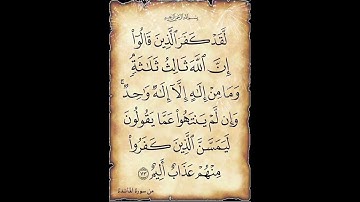 بسم الله الرحمن الرحيم
لَّقَدْ كَفَرَ ٱلَّذِينَ قَالُوٓا۟
إِنَّ ٱللَّهَ ثَالِثُ ثَلَٰثَةٍ ۘ
وَمَا مِنْ إِلَٰهٍ إِلَّآ إِلَٰهٌ وَٰحِدٌ ۚ
وَإِن لَّمْ يَنتَهُوا۟ عَمَّا يَقُولُونَ
لَيَمَسَّنَّ ٱلَّذِينَ كَفَرُوا۟
مِنْهُمْ عَذَابٌ أَلِيمٌ ﴿٧٣﴾
من سورة المائدة